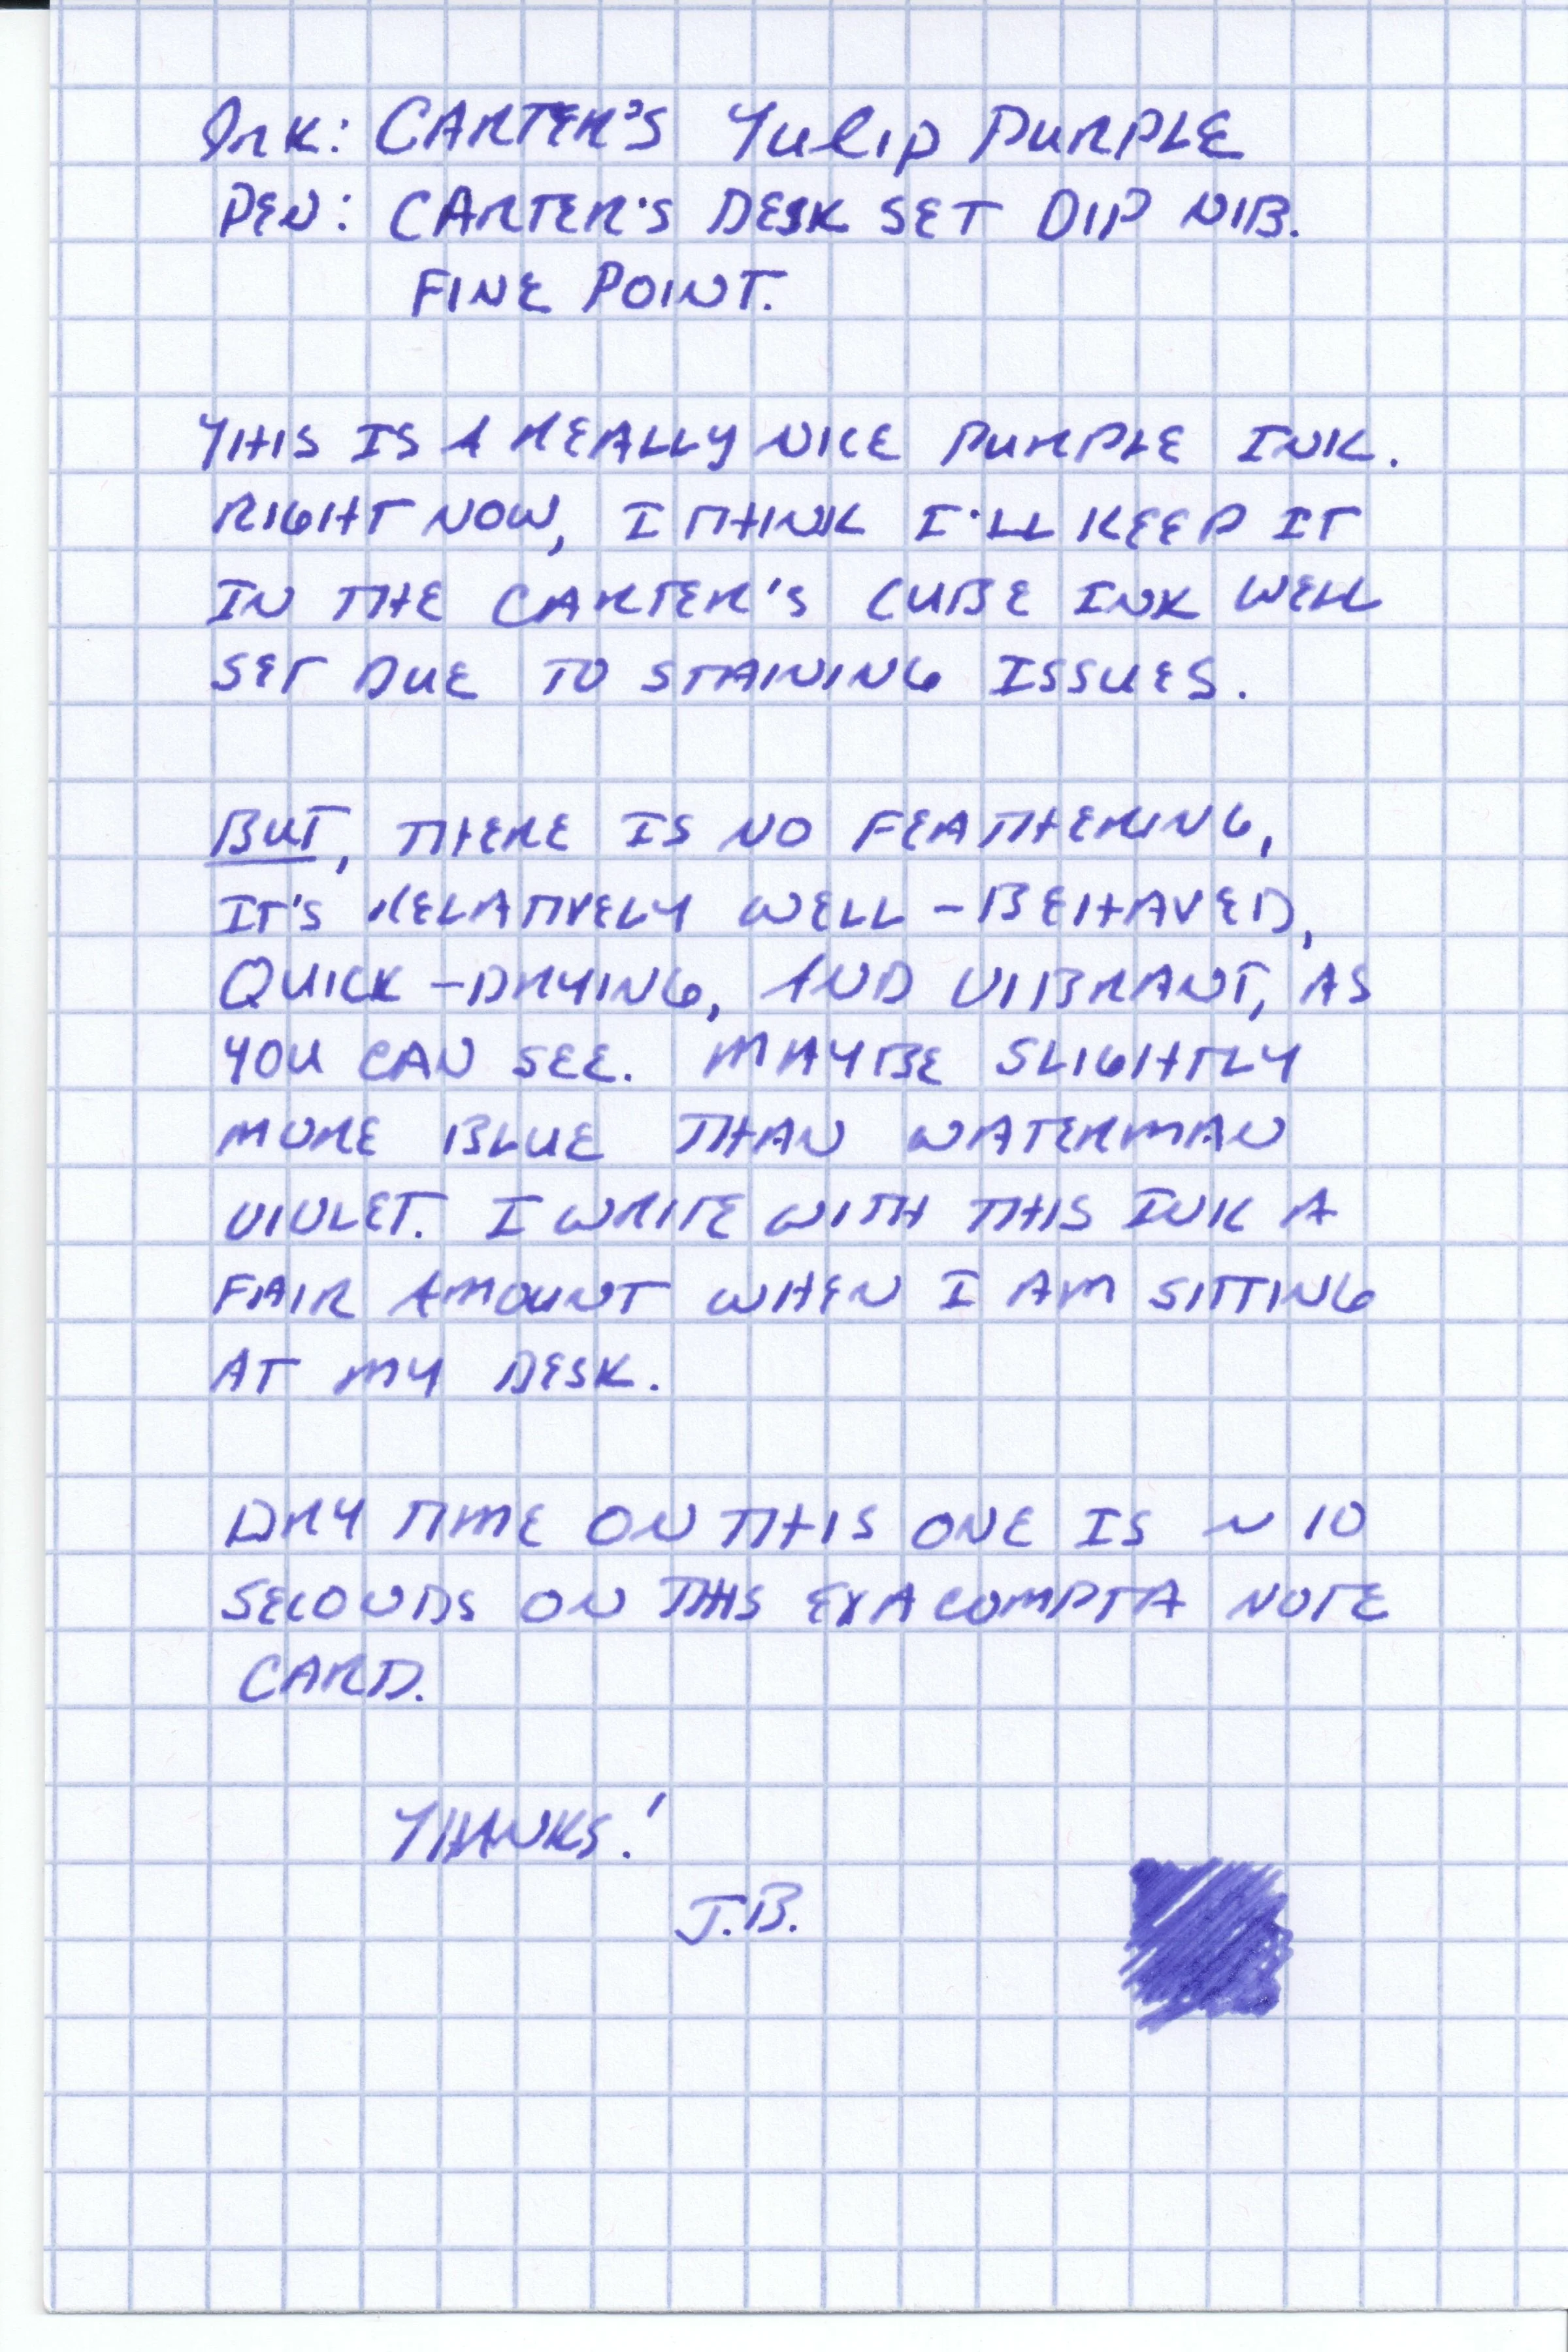 Ink: CARTER'S Tulip PURPLE
PEN: CARTER'S DESK SET DIP NIB.
FINE POINT.
THIS IS A REALLY NICE PURPLE INK.
RIGHT NOW, I THINK I'LL KEEP IT
IN THE CARTER'S CUBE INK WELL
SET DUE TO STAINING ISSUES.
BUT, THERE IS NO FEATHERING,
IT'S RELATIVELY WELL-BEHAVED,
QUICK-DRYING, AND VIBRANT, AS
YOU CAN SEE. MAYBE SLIGHTLY
MORE BLUE THAN WATERMAN
VIOLET. I WRITE WITH THIS INK A
FAIR AMOUNT WHEN I AM SITTING
AT MY DESK.
DRY TIME ON THIS ONE IS ~10
SECONDS ON THIS EXACOMPTA NOTE
CARD.
THANKS!
J.B.